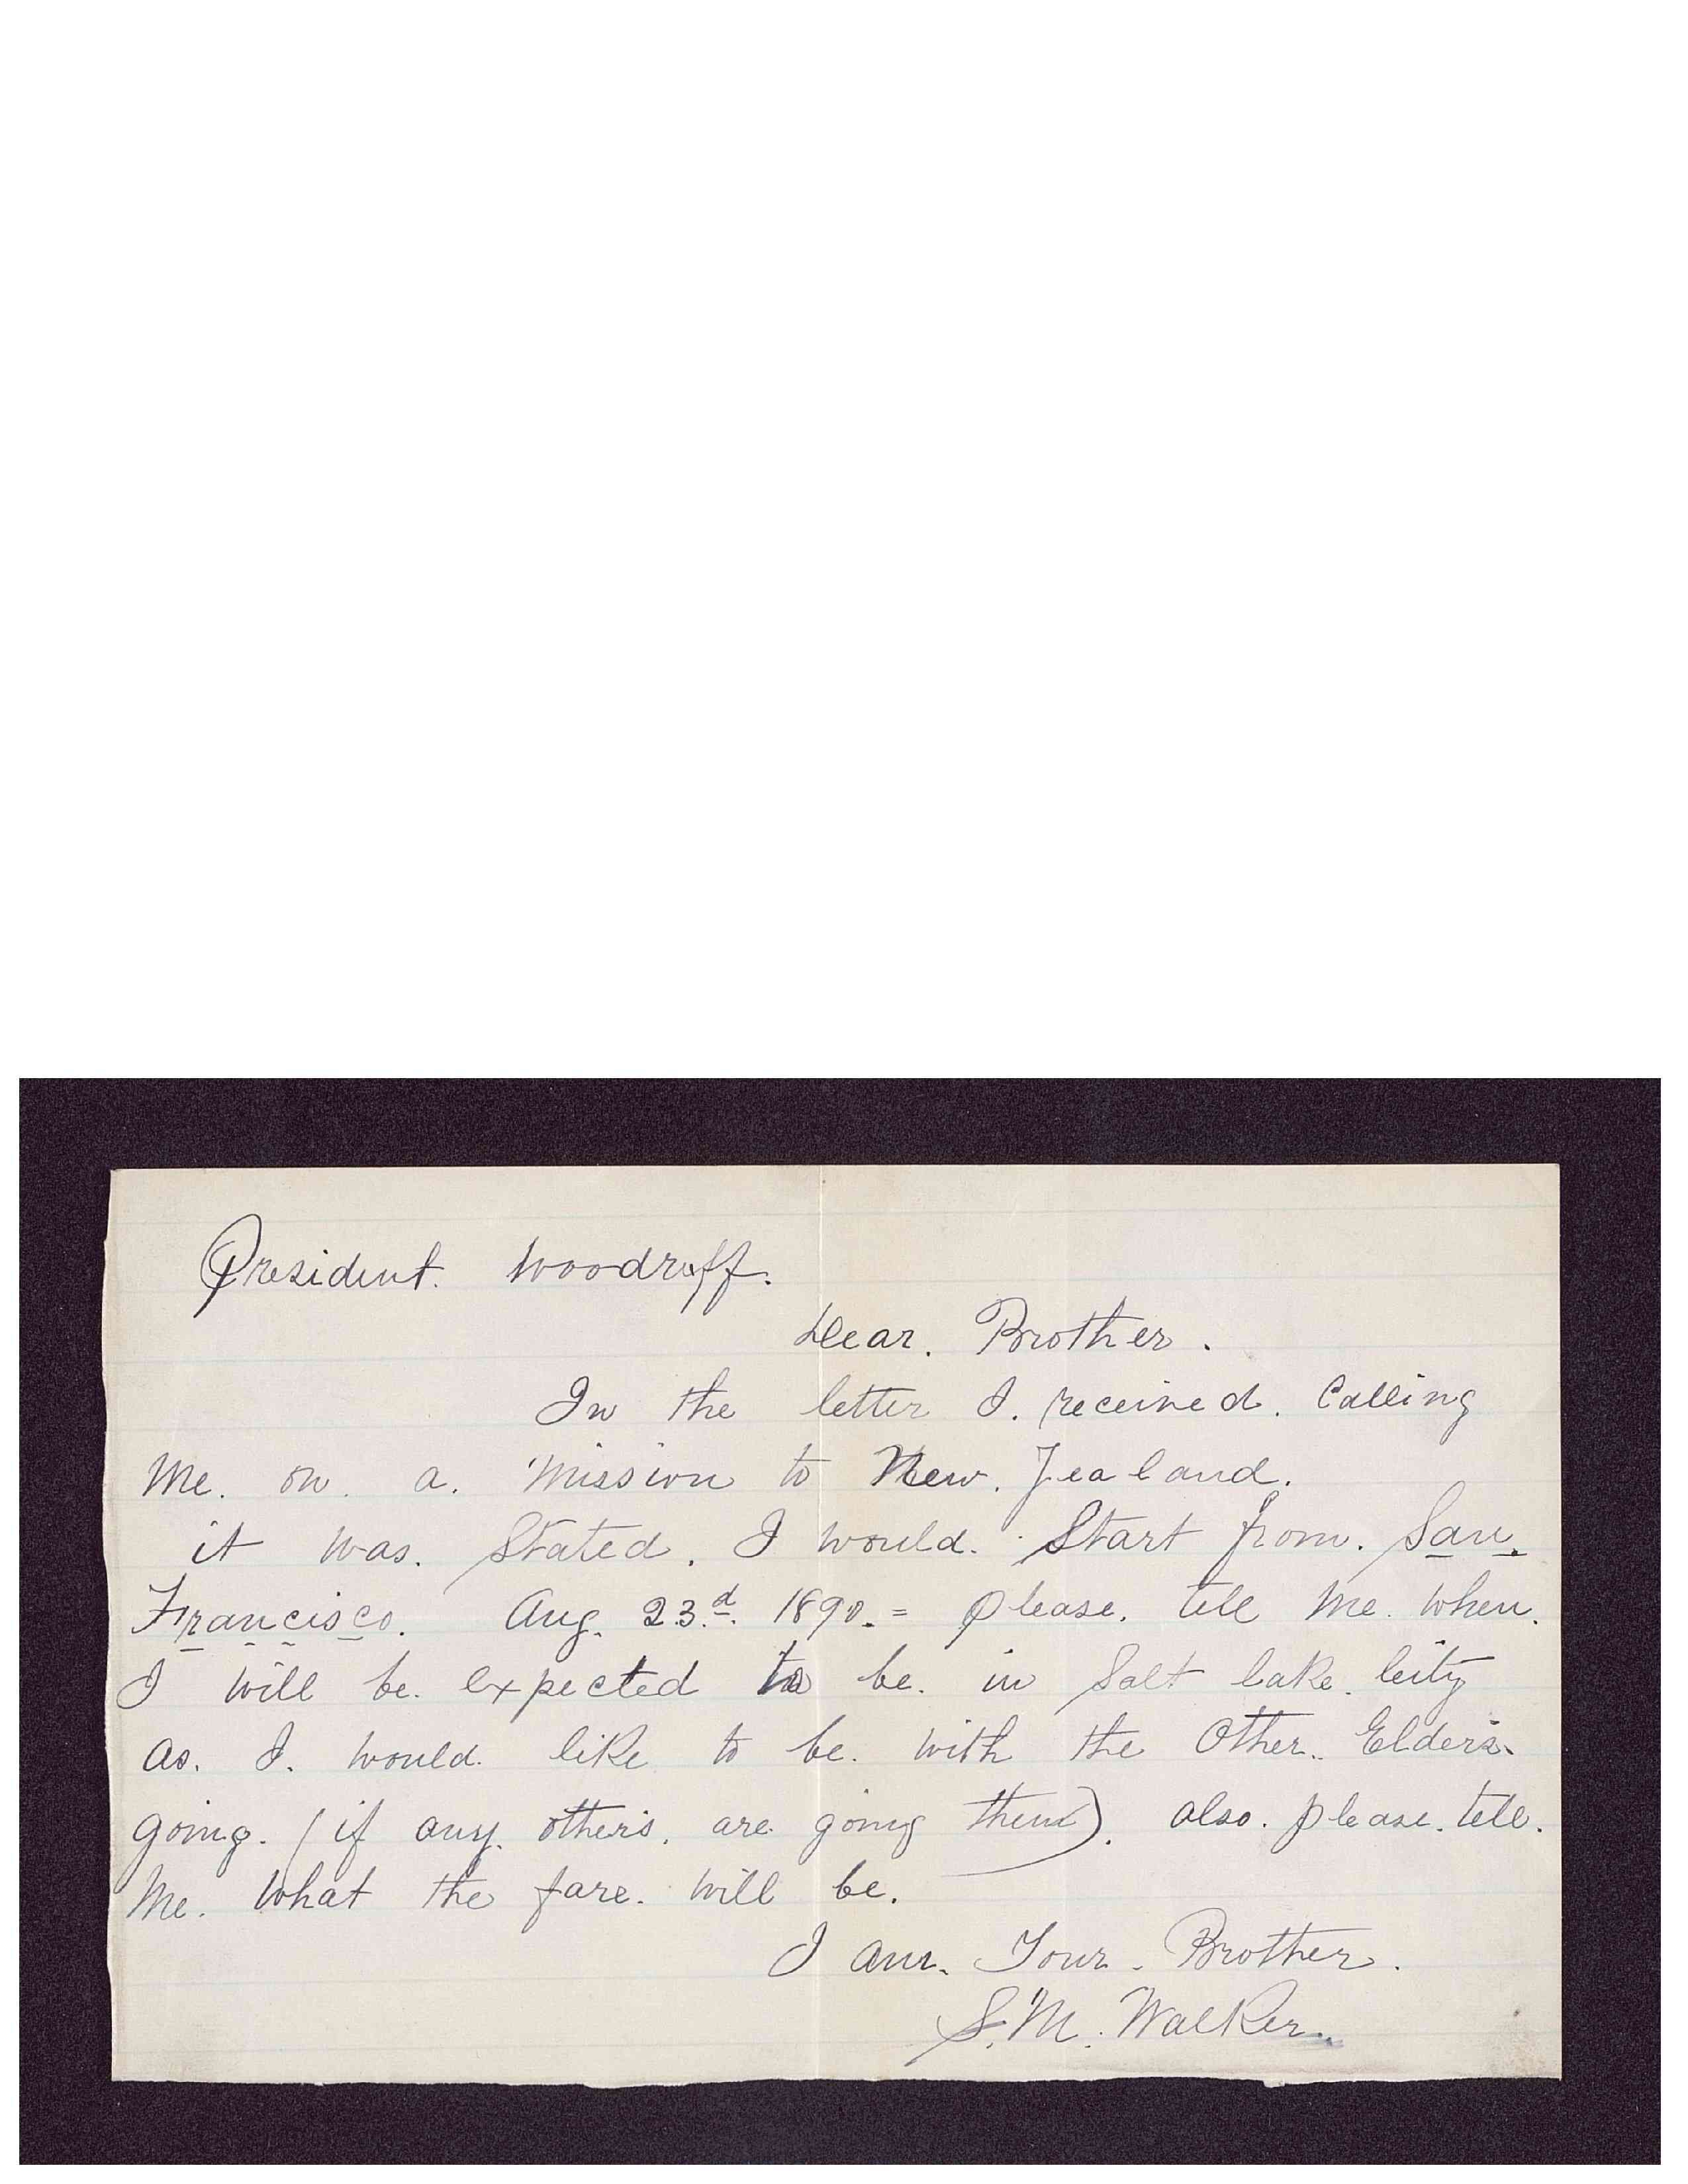 President. Woodruff.
Dear. Brother.
In the letter I. received. Calling
Me. on. a. Mission to New. Zealand.
it was. Stated. I would. Start from. San.
Francisco. Aug. 23.d. 1890. = please. tell Me. when.
I will be. expected to be. in Salt lake. City
as. I. would. like to be. with the Other. Elders.
going. (if any. others. are going then). also. please. tell.
Me. What the fare. will be.
I am. Your. Brother.
S. M. Walker.